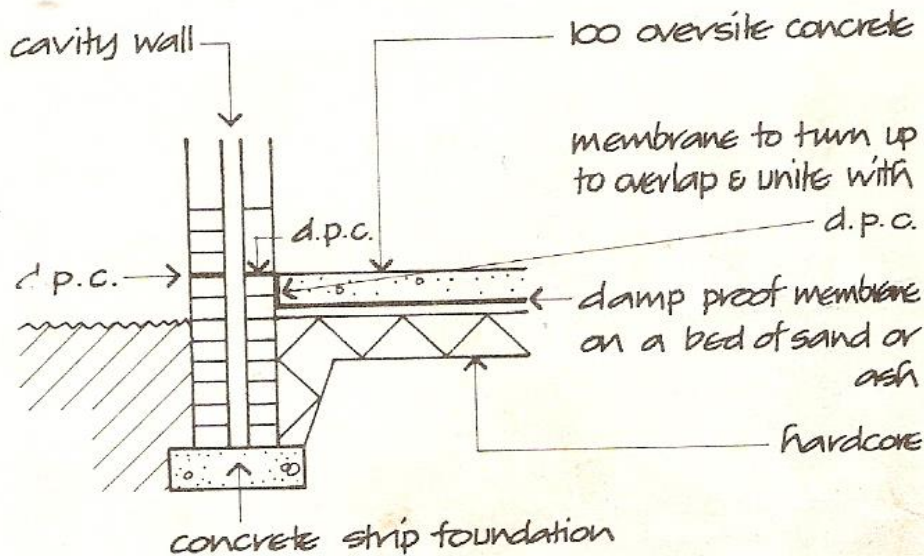 cavity wall
100 oversite concrete
membrane to turn up
to overlap & unite with
d.p.c.
d.p.c.
d p.c.
damp proof membrane
on a bed of sand or
ash
hardcore
concrete strip foundation